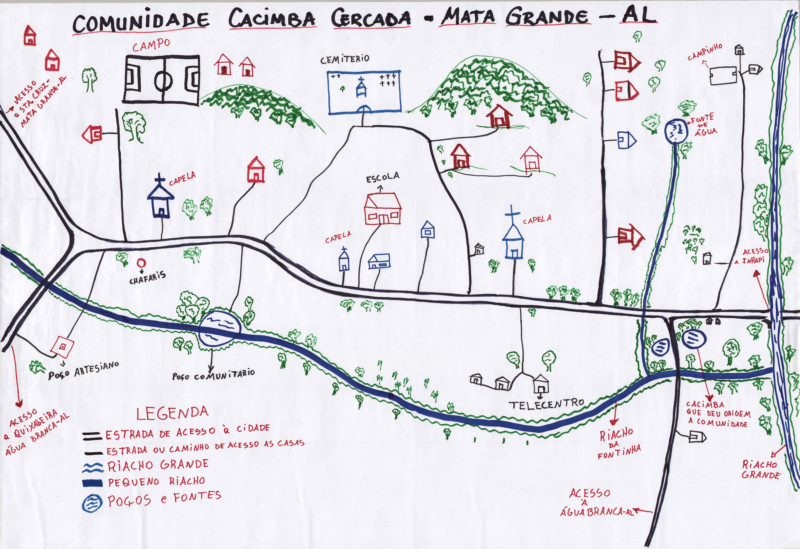 COMUNIDADE CACIMBA CERCADA - MATA GRANDE - AL
CAMPO
CEMITERIO
CAMPINHO
ACESSO
A STA. CRUZ-
MATA GRANDE-AL
FONTE
DE
ÁGUA
CAPELA
ESCOLA
CAPELA
CAPELA
ACESSO
A INHAPI
CHAFARIS
POÇO ARTESIANO
POÇO COMUNITARIO
TELECENTRO
CACIMBA
QUE DEU ORIGEM
A COMUNIDADE
ACESSO
A QUIXABEIRA
ÁGUA BRANCA-AL
RIACHO
DA
FONTINHA
RIACHO
GRANDE
ACESSO
À
ÁGUA BRANCA-AL
LEGENDA
ESTRADA DE ACESSO À CIDADE
ESTRADA OU CAMINHO DE ACESSO AS CASAS
RIACHO GRANDE
PEQUENO RIACHO
POÇOS e FONTES